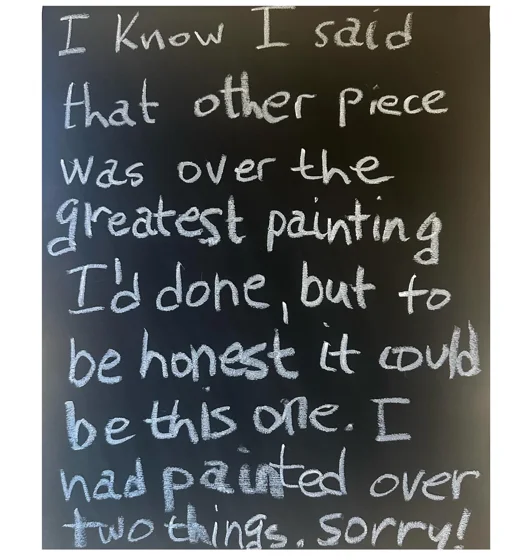 I Know I said
that other piece
was over the
greatest painting
I'd done, but to
be honest it could
be this one. I
had painted over
two things. Sorry!